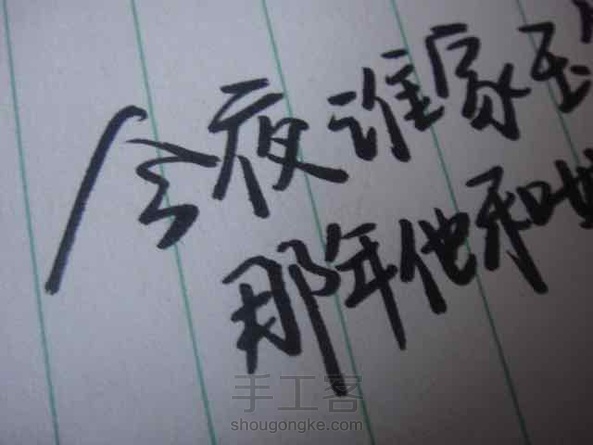 今夜谁家
那年他和
手工客
shougongke.com